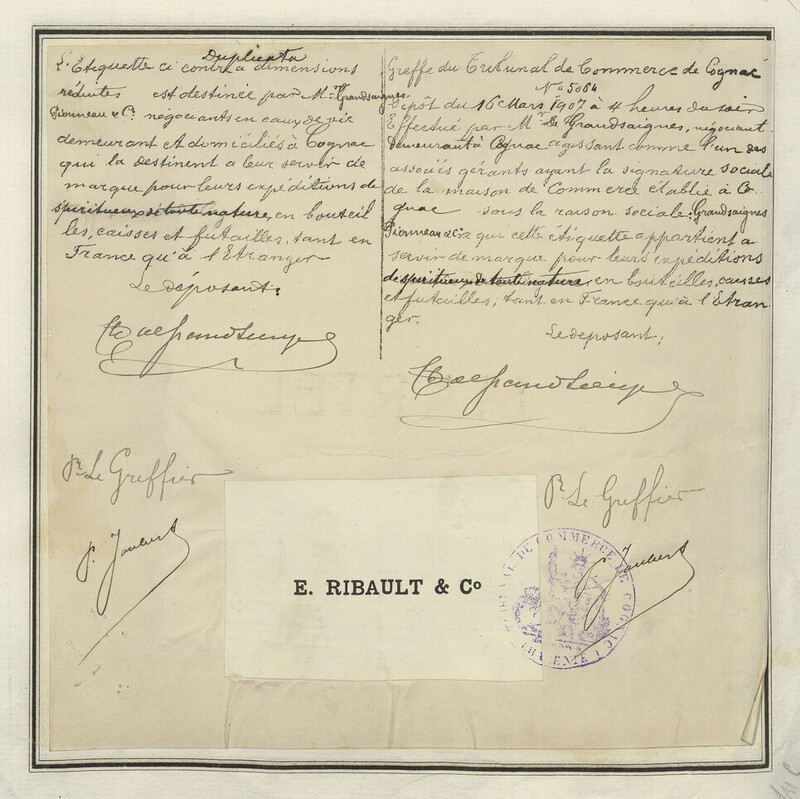 Duplicata
L'Etiquette ci contre à dimensions
réduites est destinée par Mrs Grandsaignes
Pionneau & Cie négociants en eaux de vie
demeurant et domiciliés à Cognac
qui la destinent a leur servir de
marque pour leurs expéditions de
spiritueux de toute nature, en bouteil
les, caisses et futailles, tant en
France qu'à l'Etranger
Le déposant:
Greffe du Tribunal de Commerce de Cognac
No 5064
Dépôt du 16 Mars 1907 à 4 heures du soir
Effectué par Mr de Grandsaignes, négociant
demeurant à Cognac agissant comme l'un des
associés gérants ayant la signature sociale
de la maison de Commerce établie à Co-
gnac sous la raison sociale: Grandsaignes
Pionneau & Cie a qui cette étiquette appartient a
servir de marque pour leurs expéditions
de spiritueux de toute nature, en bouteilles, caisses
et futailles, tant en France qu'à l'Etran
ger.
Le deposant:
Pr Le Greffier
Pr Le Greffier
Joubert
Joubert
E. RIBAULT & Co
TRIBUNAL DE COMMERCE DE COGNAC
CHARENTE